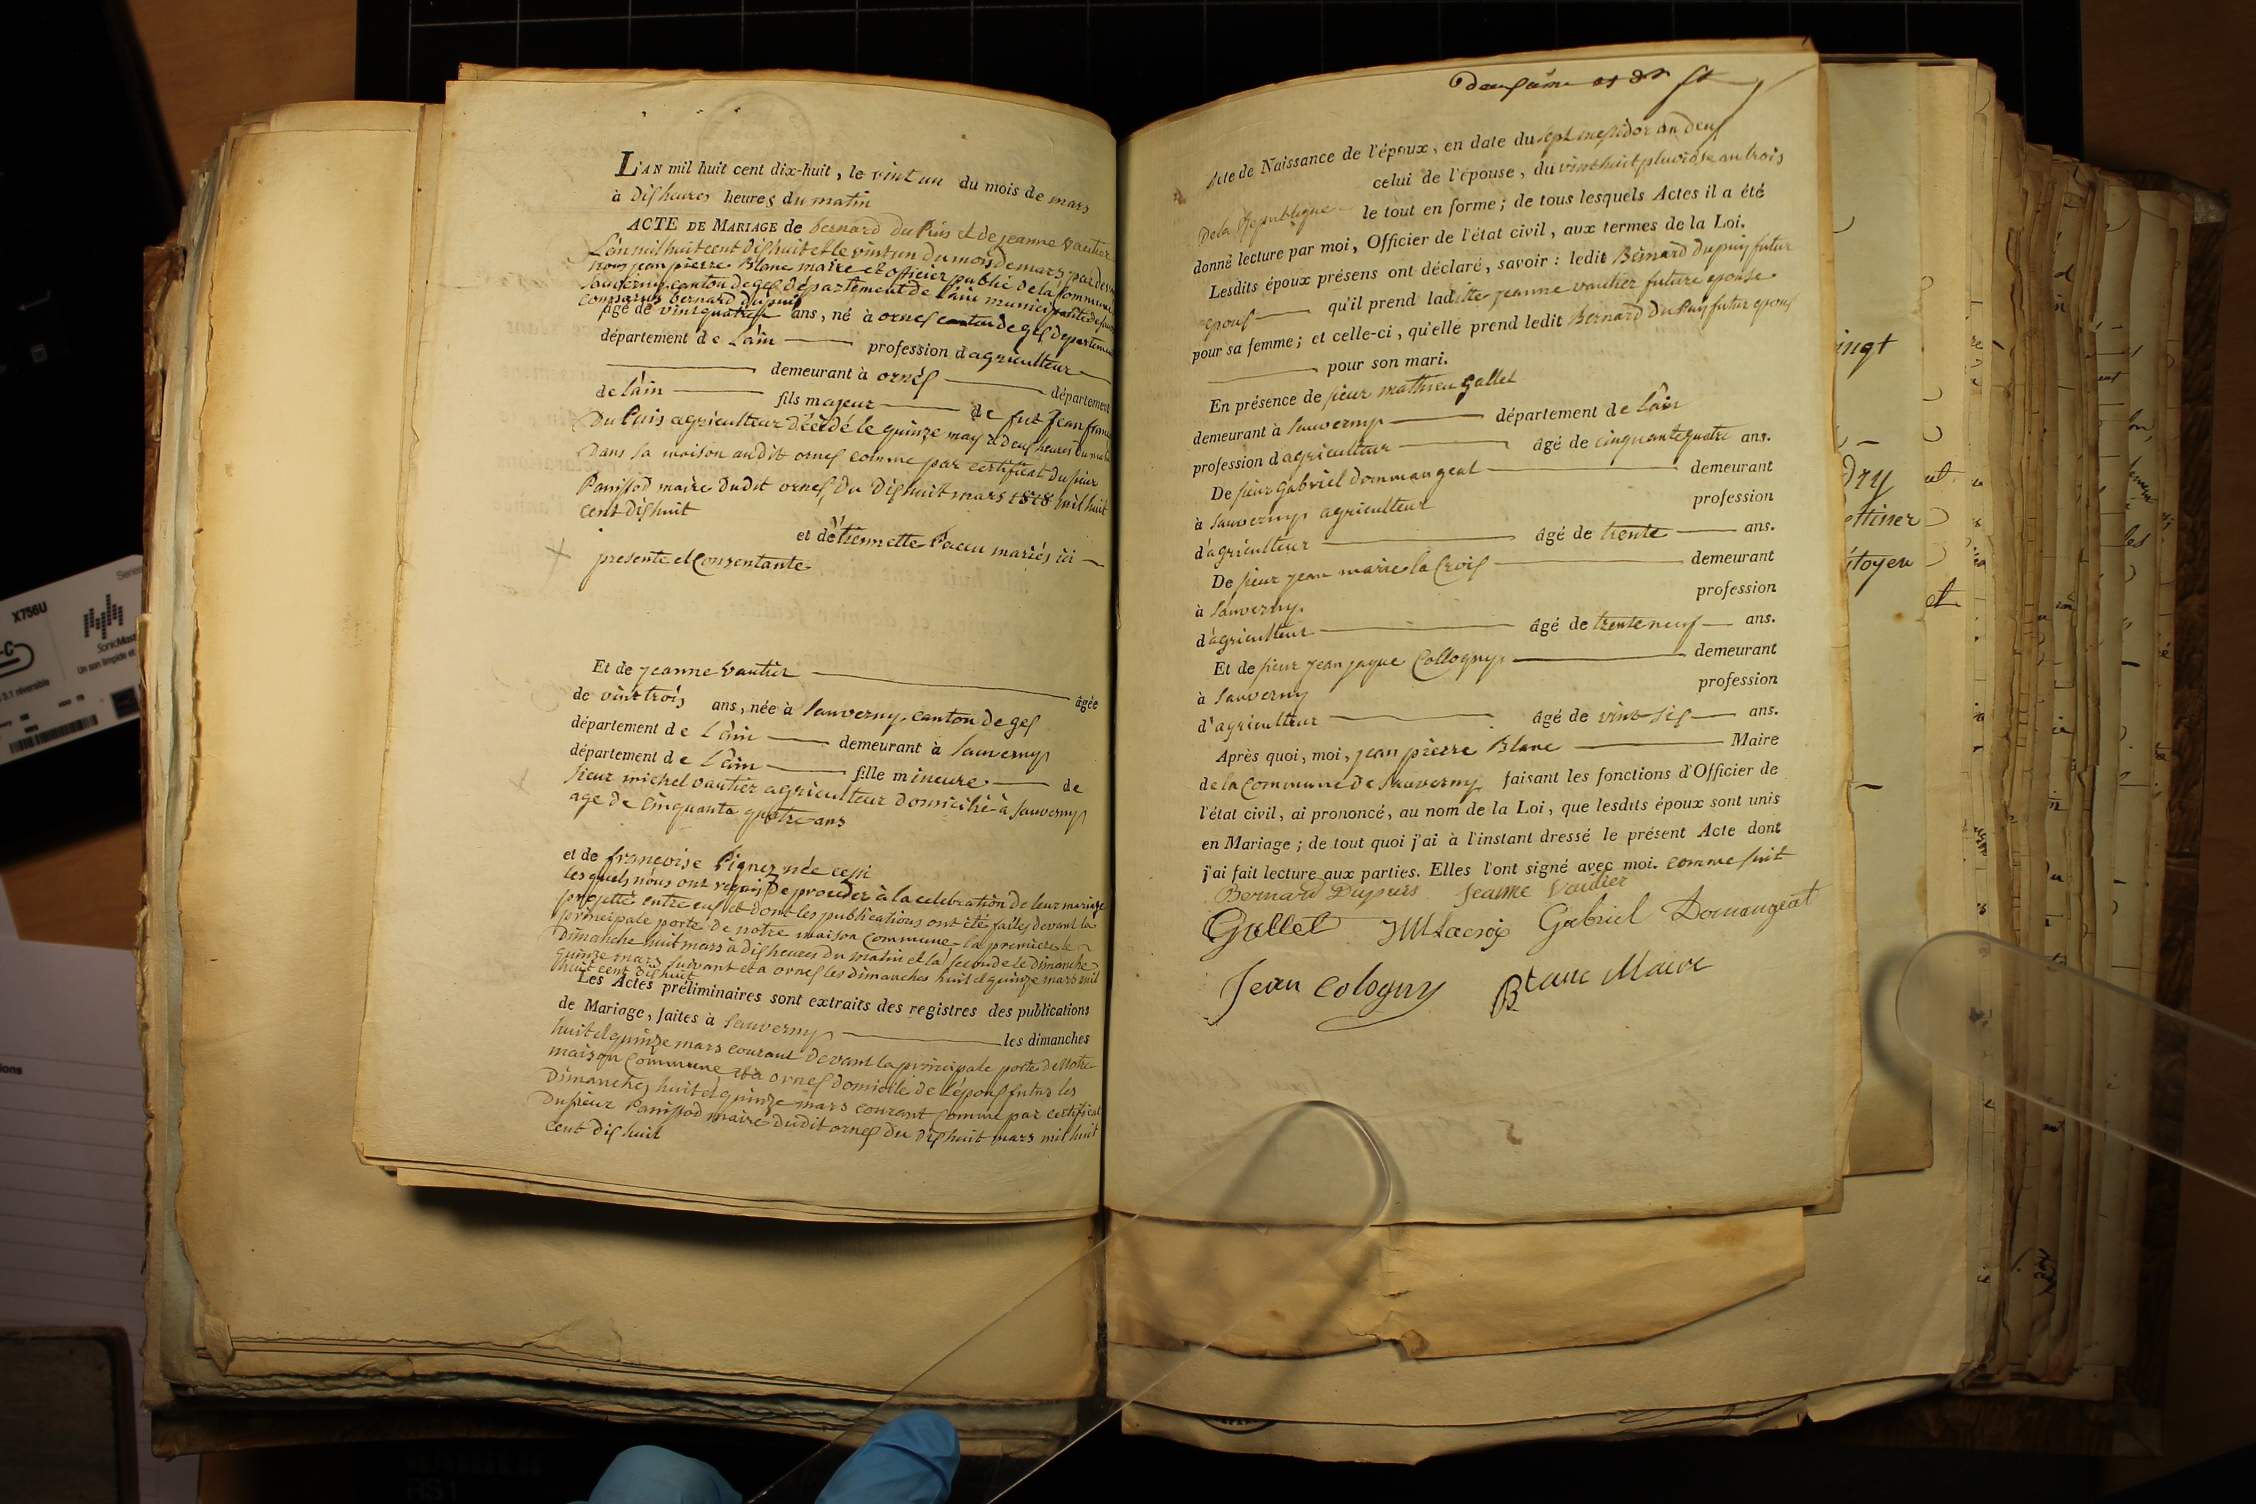 L'AN mil huit cent dix-huit, le vint un du mois de mars
à disheures heures du matin
ACTE DE MARIAGE de bernard du Puis et de jeanne Vautier
L'an mil huit cent dishuit et le vint un du mois de mars par dev
nous jean pierre Blanc maire et officier public de la Commune
Sauverny canton de gex département de l'ain municipalité de
comparus bernard dupuis
âgé de vint quatre ans, né à ornex canton de gex departement
département de L'ain profession d'agriculteur
demeurant à ornex département
de l'ain fils majeur de fut Jean fran
Du Puis agriculteur décédé le quinze may à deux heures du mat
Dans sa maison audit ornex comme par certificat du sieur
Panissod maire dudit ornex du dishuit mars 1818 mil huit
cent dishuit
et d'étiennette Pacou mariés ici
presente et Consentante
Et de jeanne Vautier âgée
de vint trois ans, née à Sauverny canton de gex
département de L'ain demeurant à Sauverny
département de L'ain fille mineure de
sieur michel vautier agriculteur domicilié à Sauverny
age de Cinquante quatre ans
et de francoise Pignez née cessi
lesquels nous ont requis De proceder à la celebration de leur mariage
projetté entre eux et dont les publications ont été faites devant la
principale porte de notre maison Commune la premiere le
Dimanche huit mars à dis heures du matin et la seconde le Dimanche
quinze mars suivant et a ornex les dimanches huit et quinze mars mil
huit cent dishuit
Les Actes préliminaires sont extraits des registres des publications
de Mariage, faites à Sauverny les dimanches
huit et quinze mars courant devant la principale porte de Notre
maison Commune et a ornex domicile de l'epoux futur les
Dimanches huit et quinze mars courant comme par certificat
Du sieur Panissod maire Dudit ornex du dishuit mars mil huit
Cent dishuit
Acte de Naissance de l'époux, en date du sept messidor an deux
celui de l'épouse, du vint huit pluviose an trois
De la Republique le tout en forme; de tous lesquels Actes il a été
donné lecture par moi, Officier de l'état civil, aux termes de la Loi.
Lesdits époux présens ont déclaré, savoir: ledit Bernard dupuis futur
epoux qu'il prend ladite jeanne vautier future epouse
pour sa femme; et celle-ci, qu'elle prend ledit Bernard Du Puy futur epoux
pour son mari.
En présence de sieur mathieu Gallet
demeurant à Sauverny département de l'ain
profession d'agriculteur âgé de cinquante quatre ans.
De sieur Gabriel dommangeat demeurant
à Sauverny agriculteur profession
d'agriculteur âgé de trente ans.
De sieur jean marie la Croix demeurant
à Sauverny profession
d'agriculteur âgé de trente neuf ans.
Et de sieur jean jaque Collogny demeurant
à Sauverny profession
d'agriculteur âgé de vint sis ans.
Après quoi, moi, jean pierre Blanc Maire
de la Commune de Sauverny faisant les fonctions d'Officier de
l'état civil, ai prononcé, au nom de la Loi, que lesdits époux sont unis
en Mariage; de tout quoi j'ai à l'instant dressé le présent Acte dont
j'ai fait lecture aux parties. Elles l'ont signé avec moi. comme suit
Bernard Dupuis Jeanne Vautier
Gallet JM Lacroix Gabriel Domangeat
Jean Cologny Blanc Maire
ingt
dry
ottiner
itoyen
et
X756U
SonicMaster